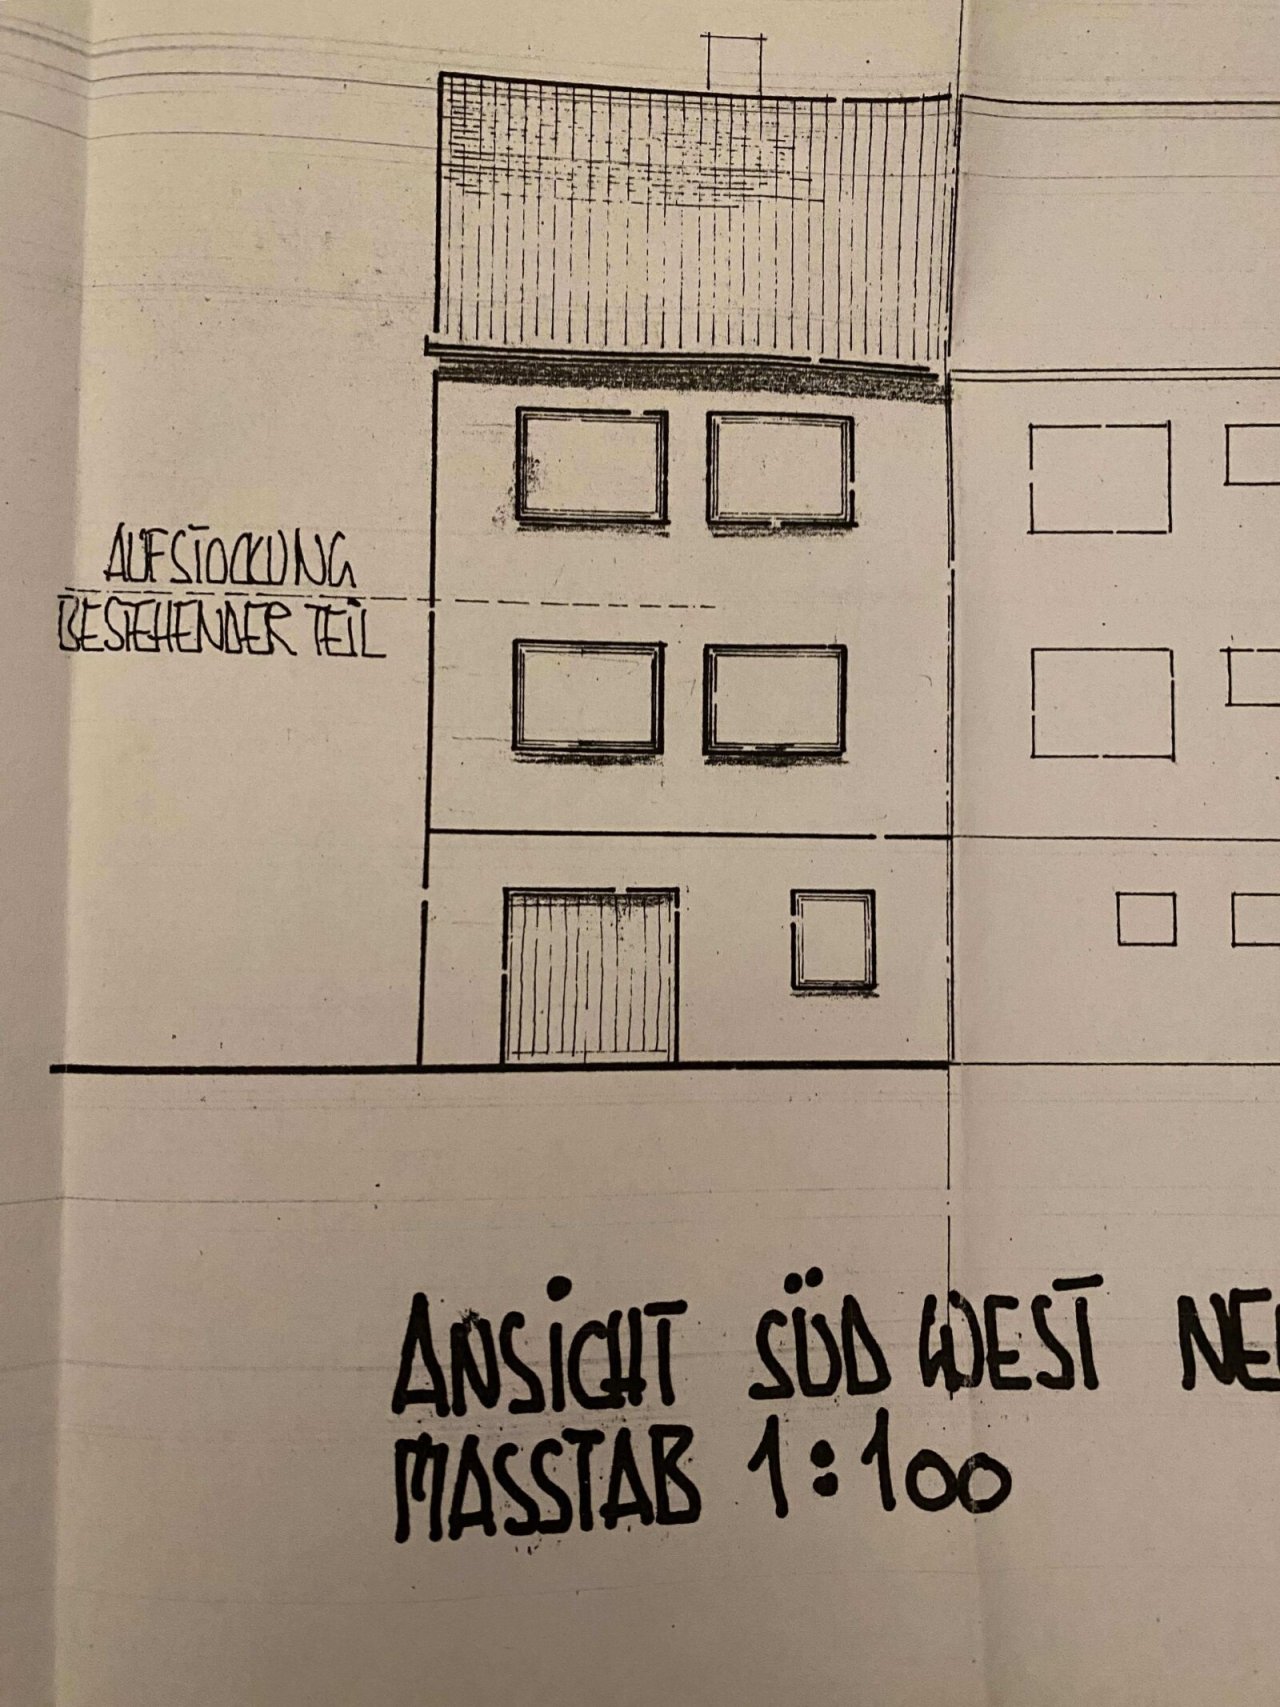 AUFSTOCKUNG
BESTEHENDER TEIL
ANSICHT SÜD WEST
MASSTAB 1:100